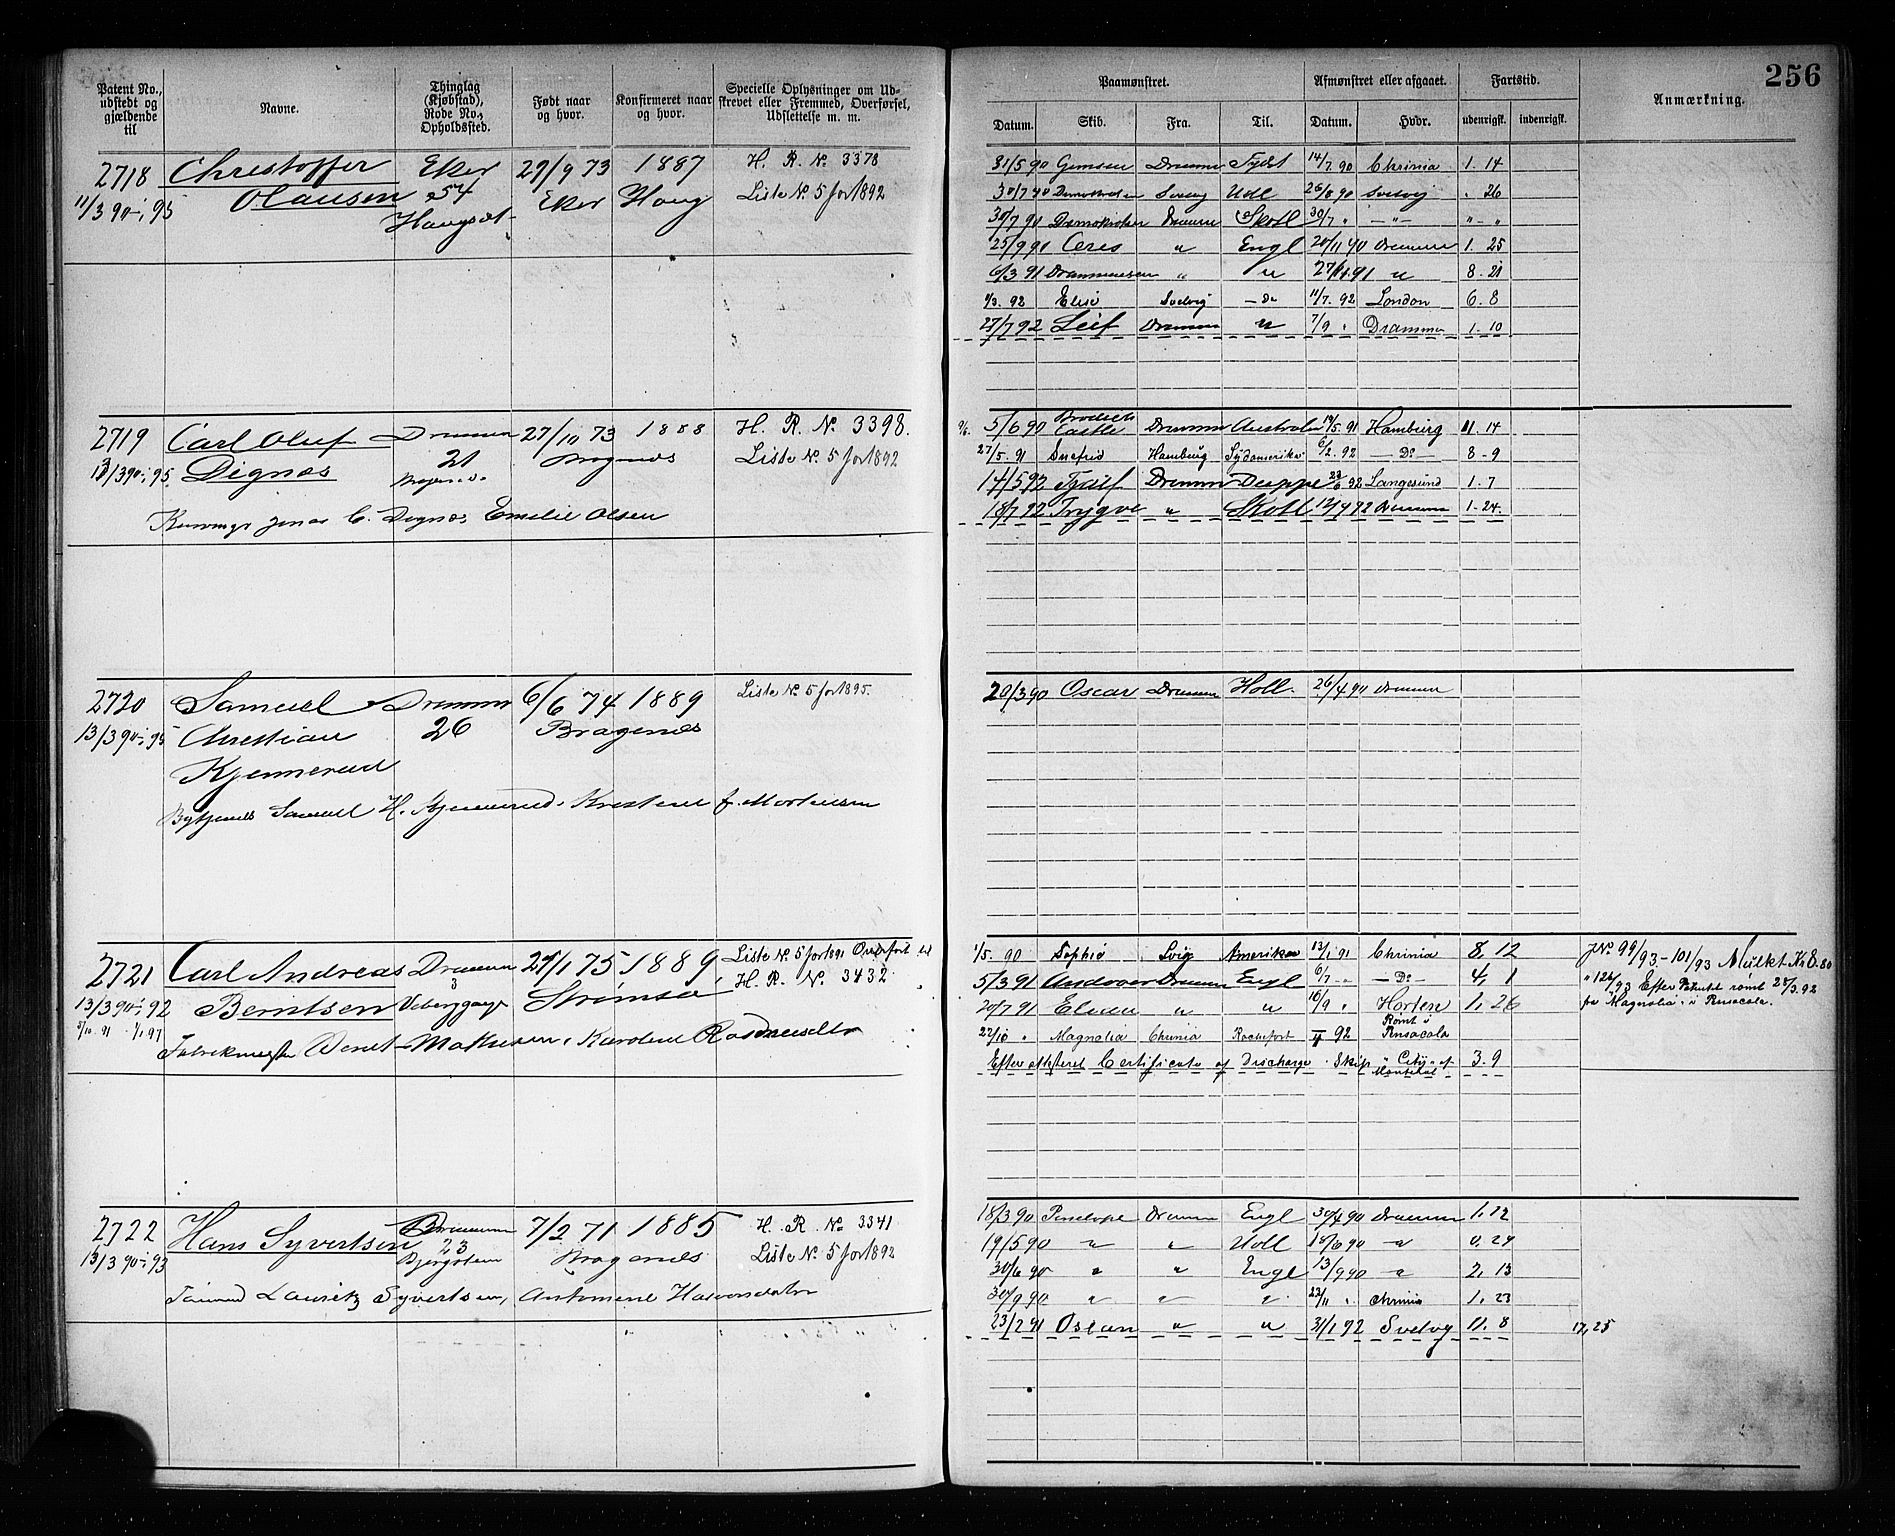 256
Patent No., udstedt og gjældende til
Navne.
Thinglag (Kjøbstad), Rode No., Opholdssted.
Født naar og hvor.
Konfirmeret naar og hvor.
Specielle Oplysninger om Udskrevet eller Fremmed, Overførsel, Udslettelse m. m.
Paamønstret.
Afmønstret eller afgaaet.
Fartstid.
Anmærkning.
Datum. Skib. Fra. Til. Datum. Hvor. udenrigsk. indenrigsk.
2718 Christoffer Eker 29/9 73 1887 H. R. No 3378
11/3 90 - i, 95 Olausen 54 Eker Houg Liste No. 5 for 1892
31/5 90 Gemsen Drammen 14/7 90 Chrinia 1. 14
30/7 90 Svelvig Holl 26/8 90 Svelvig 26
30/7 90 Drammen Skotl 30/7 " — " — " - "
25/9 90 Ceres " Engl 20/11 90 Drammen 1. 25
6/3 91 Drammensen " " 91 " 8 - 21
92 Elise Svelvig — Do 11/7. 92 London 6. 8
27/7 92 Leif Drammen " 7/9 " Drammen 1. 10
2719 Carl Oluf Drammen 27/10 73 1888 H. R. No. 3398.
13/3 90 - i, 95 Dignæs 21 Bragenæs Liste No. 5 for 1892
C. Dignæs Emelie Olsen
5/6 90 Castle Drammen Australien 91 Hamburg 14
27/5. 91 Snefrid Hamburg Sydamerika 6/2. 92 — Do — 8 - 9
14/5 92 Drammen Dieppe 92 Langesund 1. 7
18/7 92 Trygve " Skotl 92 Drammen 1. 24.
2720 Samuel Drammen 6/6 74 1889 Liste No. 5 for 1895.
13/3 90 - i, 95 Christian 26 Bragenæs
Kjennerud
Samuel H. Kjennerud. Kristene f. Mortensen
20/3 90 Oscar Drammen Holl. 26/4 90 Drammen
2721 Carl Andreas Drammen 75 1889 Liste No. 5 for 1891 Overført til
13/3 90 - i, 92 Berntsen 3 Strømsø H. R. No. 3432
Bernt Karoline
1/5. 90 Sophie Svig Amerika 13/1 91 Chrinia 8, 12
5/3 91 Andover Drammen Engl 6/7 " — Do — 4, 1
20/7 91 " " 16/9 " Horten 1, 26
27/10 " Magnolia Chrinia Rochefort 92 Rømt i Pensacola
Efter attesteret Certificate of Discharge. Skip "City of Montreal" 3. 9
J No 99/93 - 101/93 Mulkt Kr 8.80
Efter rømt 92
fra "Magnolia" i Pensacola.
2722 Hans Syvertsen Drammen 7/2 71 1885 H. R. No 3341
13/3 90 - i, 93 23 Bragenæs Liste No. 5 for 1892
Lauritz Syvertsen, Antomine Halvorsdatter
18/3 90 Penelope Drammen Engl 30/4 90 Drammen 1, 12
19/5 90 " " Holl 18/6 90 " 0. 29
30/6 90 " " Engl 13/9 90 " 2, 13
30/9 90 " " " 22/11 " Chrinia 1, 23
23/2 91 Oscar " " 31/1 92 Svelvig 11. 8
17, 25